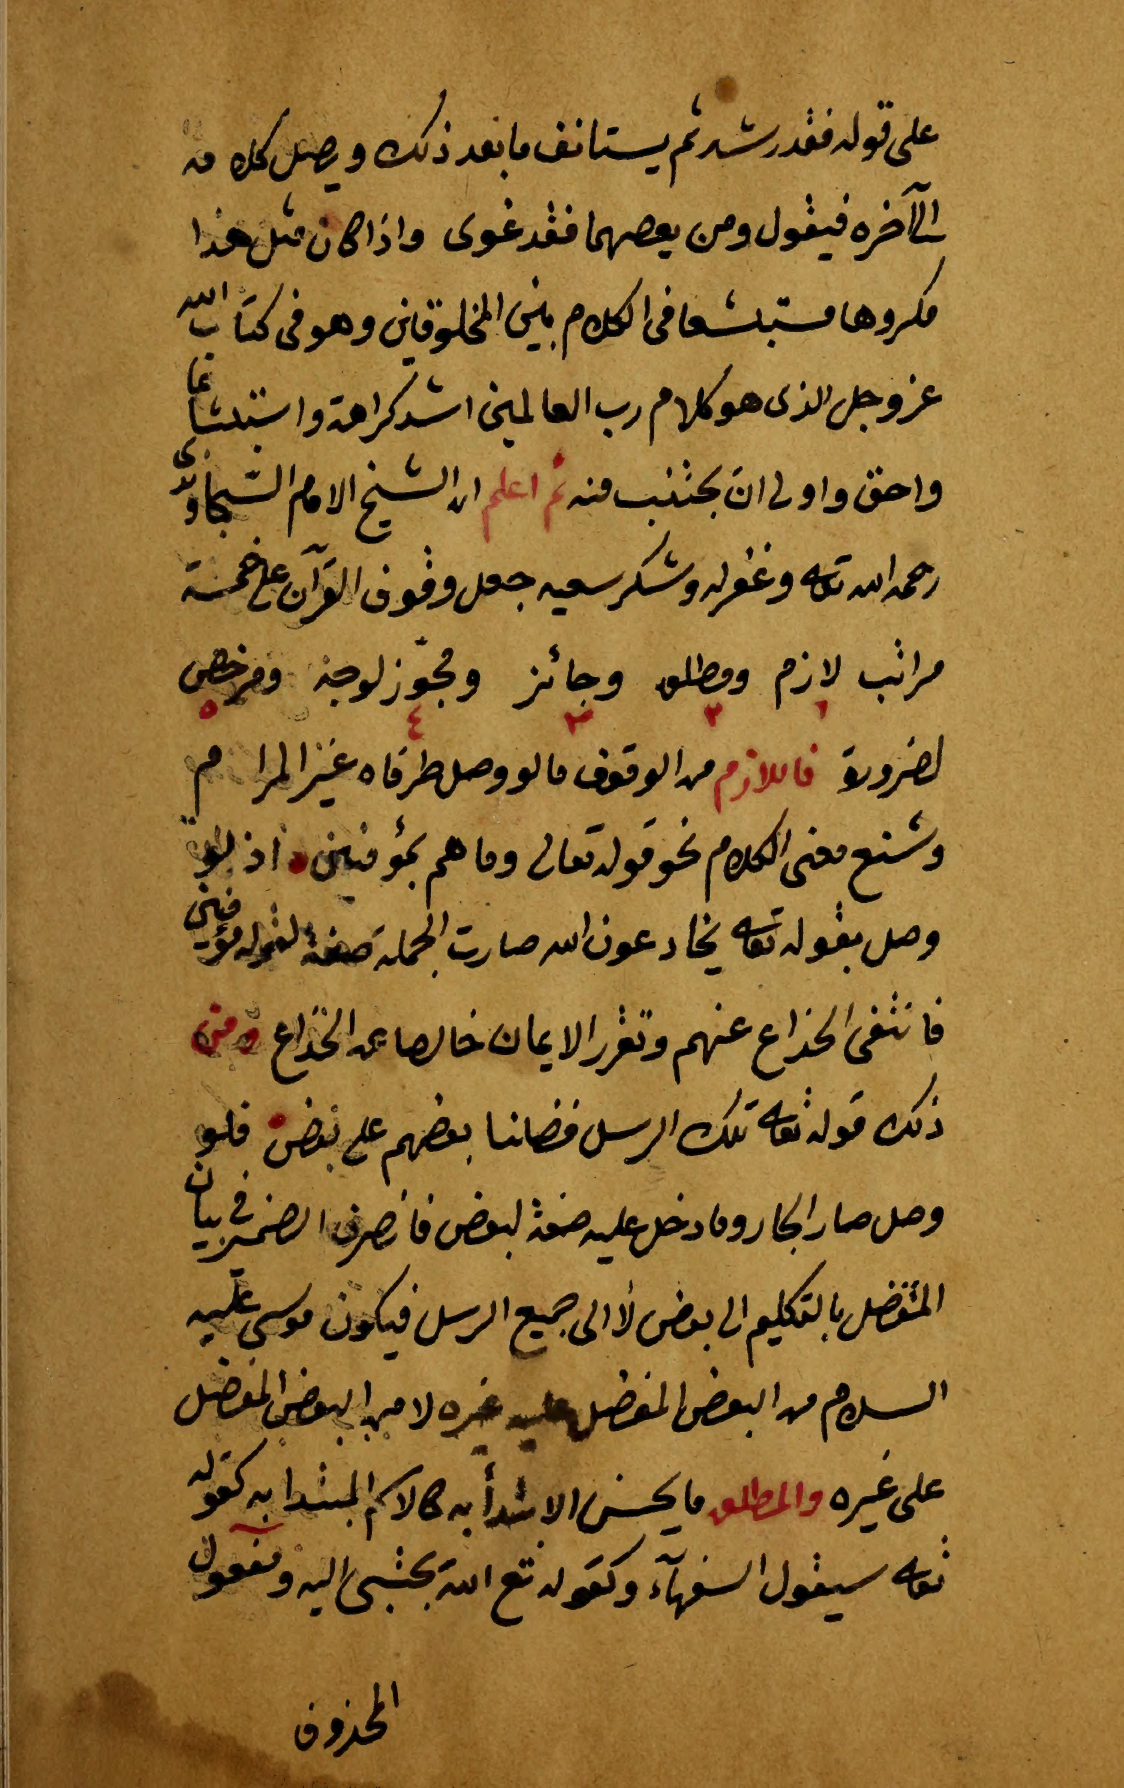 على قوله فقد رشد ثم يستانف ما بعد ذلك ويصل كلامه
الى آخره فيقول ومن يعصهما فقد غوى واذا كان مثل هذا
مكروها مستبشعا في الكلام بين المخلوقين وهو في كتاب الله
عز وجل الذى هو كلام رب العالمين اشد كراهة واستبشاعا
واحق واولى ان يجتنب منه ثم اعلم ان الشيخ الامام السّجاوندى
رحمه الله تعالى وغفر له وشكر سعيه جعل وقوف القرآن على خمسة
مراتب لازم ومطلق وجائز ومجوّز لوجه ومرخص
١ ٢ ٣ ٤ ٥
لضرورة فاللازم من الوقوف ما لو وصل طرفاه غير المرام
وشنع معنى الكلام نحو قوله تعالى وما هم بمؤمنين اذ لو
وصل بقوله تعالى يخادعون الله صارت الجملة صفة لقوله مؤمنين
فانتفى الخداع عنهم وتقرر الايمان خالصا عن الخداع ومن
ذلك قوله تعالى تلك الرسل فضلنا بعضهم على بعض فلو
وصل صار الجار وما دخل عليه صفة لبعض فانصرف الضمير في بيان
المتفضل بالتكليم الى بعض لا الى جميع الرسل فيكون موسى عليه
السلام من البعض المفضل عليه غيره لا من البعض المفضل
على غيره والمطلق ما يحسن الابتدأ به كالاسم المبتدا به كقوله
تعالى سيقول السفهآء وكقوله تع الله يجتبى اليه ومفعول
المحذوف